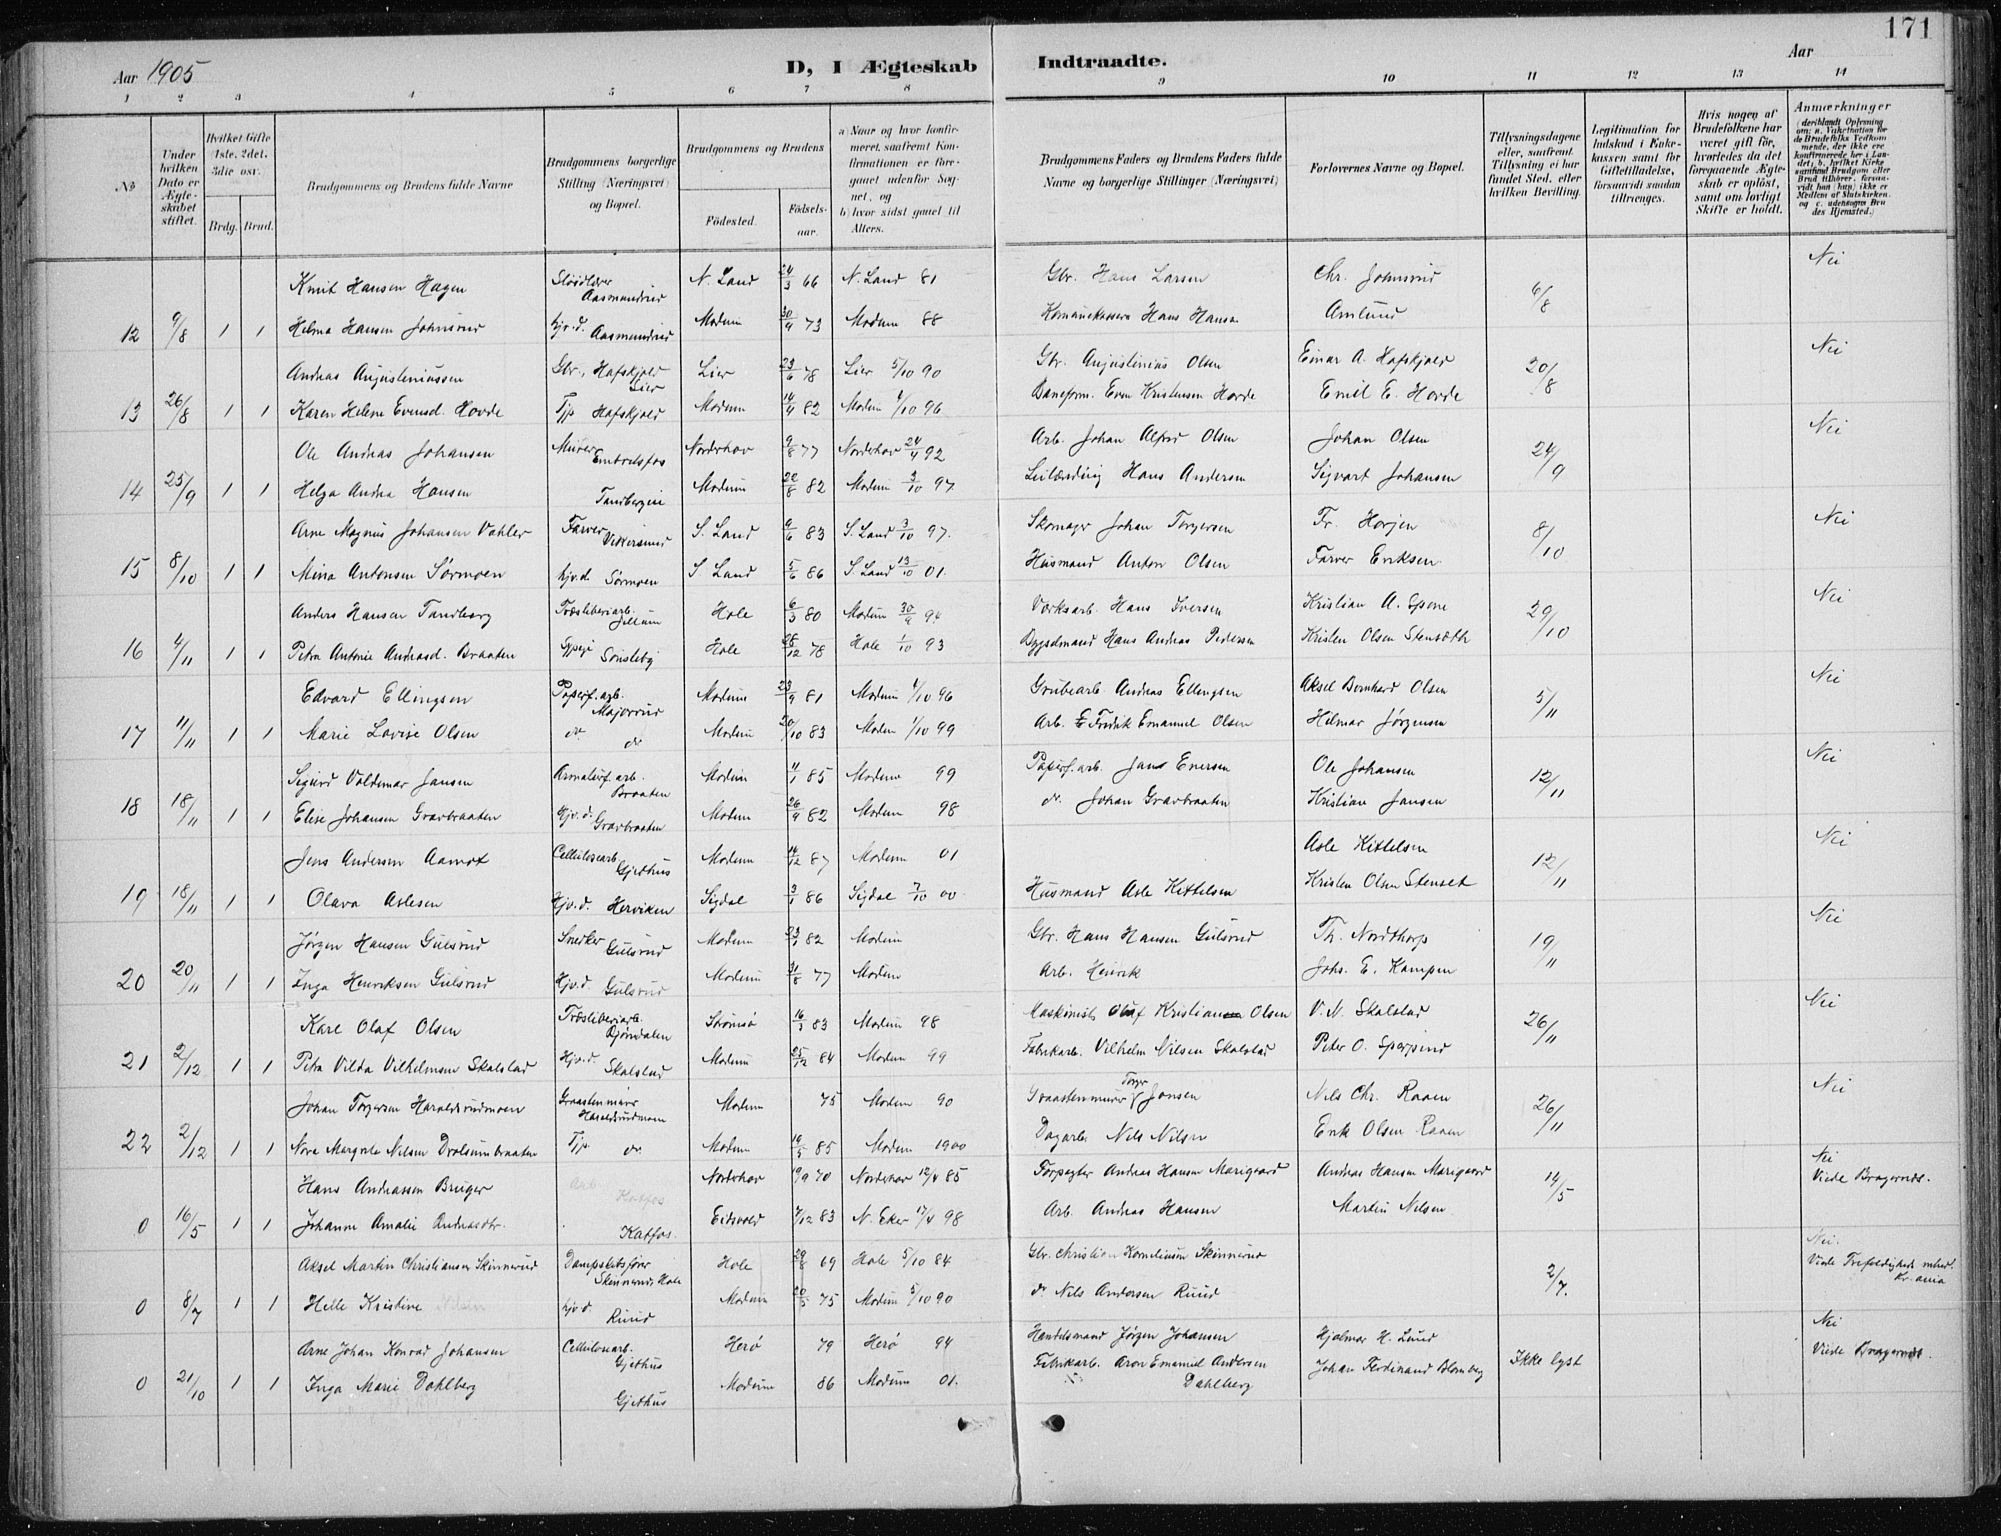 171
Aar 1905
D, I Ægteskab Indtraadte.
Aar
1 2 3 4 5 6 7 8 9 10 11 12 13 14
No
Under hvilken Dato er Ægteskabet stiftet.
Hvilket Gifte 1ste, 2det, 3die osv.
Brdg. Brud.
Brudgommens og Brudens fulde Navne
Brudgommens borgerlige Stilling (Næringsvei) og Bopæl.
Brudgommens og Brudens
Födested.
Födselsaar.
a) Naar og hvor konfirmeret, saafremt Konfirmationen er foregaaet udenfor Sognet, og
b) hvor sidst gaaet til Alters.
Brudgommens Faders og Brudens Faders fulde Navne og borgerlige Stillinger (Næringsvei)
Forlovernes Navne og Bopæl.
Tillysningsdagene eller, saafremt Tillysning ei har fundet Sted, efter hvilken Bevilling.
Legitimation for Indskud i Enkekassen samt for Giftetilladelse, forsaavidt saadan tiltrænges.
Hvis nogen af Brudefolkene har været gift för, hvorledes da det foregaaende Ægteskab er oplöst, samt om lovligt Skifte er holdt.
Anmærkninger
Knut Hansen Hagen Aasmundrud N. Land 24/3 66 N. Land 81 Gbr. Hans Larsen Chr. Johnsrud 6/8 Nei
12 9/8 1 1 Helma Hansen Johnsrud hjv.d. Aasmundrud Modum 30/9 73 Modum 88 Hans Hansen Amlund
Andreas Augustiniussen Gbr. Hafskjold Lier Lier 23/6 78 Lier 5/10 90 Gbr. Augustinius Olsen Einar A. Hafskjold 20/8 Nei
13 26/8 1 1 Karen Helene Evensd. Hovde Tjp Hafskjold Modum 14/4 82 Modum 4/10 96 Baneform. Even Kristensen Hovde Emil E. Hovde
Ole Andreas Johansen Murer Embretsfos Norderhov 9/8 77 Norderhov 24/4 92 Arb. Johan Alfred Olsen Johan Olsen 24/9 Nei
14 25/9 1 1 Helga Andrea Hansen Modum 22/8 82 Modum 3/10 97 Leilænding Hans Andersen Sigvart Johansen
Arne Magnus Johansen Vahler Farver Vikersund S. Land 9/6 83 S. Land 3/10 97. Skomager Johan Torgersen Fr. Horjen 8/10 Nei
15 8/10 1 1 Mina Antonsen Sørmoen hjv.d. Sørmoen S. Land 5/6 86 S. Land 13/10 01. Husmand Anton Olsen Farver Eriksen
Anders Hansen Tandberg Træsliberiarb. Hole 6/3 80 Modum 30/9 94 Værksarb. Hans Iversen Kristian A. Spone 29/10 Nei
16 4/11 1 1 Petra Antonie Andreasd. Braaten Sypige Sønsteby Hole 28/12 78 Hole 1/10 93 Bygselmand Hans Andreas Pedersen Kristen Olsen Stensæth
Edvard Ellingsen Papirf.arb. Majorrud Modum 23/9 81 Modum 4/10 96 Grubearb. Andreas Ellingsen Aksel Bernhard Olsen 5/11 Nei
17 11/11 1 1 Marie Lovise Olsen do. do. Modum 20/10 83 Modum 1/10 99 Arb. Fredrik Emanuel Olsen Helmar Jørgensen
Sigurd Valdemar Jansen arb. Braaten Modum 11/1 85 Modum 99 Papirf.arb. Jans Enersen Ole Johansen 12/11 Nei
18 18/11 1 1 Elise Johansen Gravbraaten Hjv.d. Gravbraaten Modum 26/9 82 Modum 98 do. Johan Gravbraaten Kristian Jansen
Jens Andersen Aamot Cellulosearb. Gjethus Modum 14/12 87 Modum 01 Asle Kittelsen 12/11 Nei
19 18/11 1 1 Olava Aslesen Hjv.d. Herviken Sigdal 3/1 86 Sigdal 7/10 00 Husmand Asle Kittelsen Kristen Olsen Stenset
Jørgen Hansen Gulsrud Snedker Gulsrud Modum 23/1 82 Modum Gbr. Hans Hansen Gulsrud Th. Nordthorp 19/11 Nei
20 20/11 1 1 Inga Henriksen Gulsrud Hjv.d. Gulsrud Modum 31/8 77 Modum Arb. Henrik Johs. E. Kampen
Kare Olaf Olsen Træsliberiarb. Bjørndalen Strømsø 16/3 83 Modum 98 Maskinist Olaf Kristian Olsen V. N. Skalstad 26/11 Nei
21 2/12 1 1 Petra Vilda Vilhelmsen Skalstad Hjv.d. Skalstad Modum 25/12 84 Modum 99 Fabrikarb. Vilhelm Nilsen Skalstad Peter O.
Johan Torgersen Haraldsrudmoen Graastenmurer Haraldsrudmoen Modum 75 Modum 90 Graastenmurer Torger Jonsen Nils Chr. Raaen 26/11 Nei
22 2/12 1 1 Nora Margrete Nilsen Drolsumbraaten Tjp. do. Modum 19/5 85 Modum 1900 Dagarb. Nils Nilsen Erik Olsen Raaen
Hans Andreassen Bruger Arb. Katfos Norderhov 19/9 70 Norderhov 12/4 85 Forpagter Andreas Hansen Marigaard Andreas Hansen Marigaard 14/5 Nei Viede Bragernæs.
0 16/5 1 1 Johanne Amalie Andreasdtr. Katfos. Eidsvold 7/12 83 N. Eker 17/4 98 Arb. Andreas Hansen Martin Nilsen
Aksel Martin Christiansen Skinnerud Dampskibsfører Skinnerud, Hole Hole 29/8 69 Hole 5/10 84 Gbr. Christian Kornelius Skinnerud 2/7. Nei. Viede Trefoldigheds menh. Kr.ania
0 8/7 1 1 Helle Kristine Nilsen hjv.d. Ruud Modum 20/5 75 Modum 5/10 90 do. Nils Andersen Ruud
Arne Johan Konrad Johansen Cellulosearb. Gjethus Herø 79 Herø 94 Handelsmand Jørgen Johansen Hjalmar H. Lund Ikke lyst Nei Viede Bragernæs.
0 21/10 1 1 Inga Marie Dahlberg Gjethus Modum 86 Modum 01. Fabrikarb. Aron Emanuel Andersen Dahlberg Johan Ferdinand Blomberg